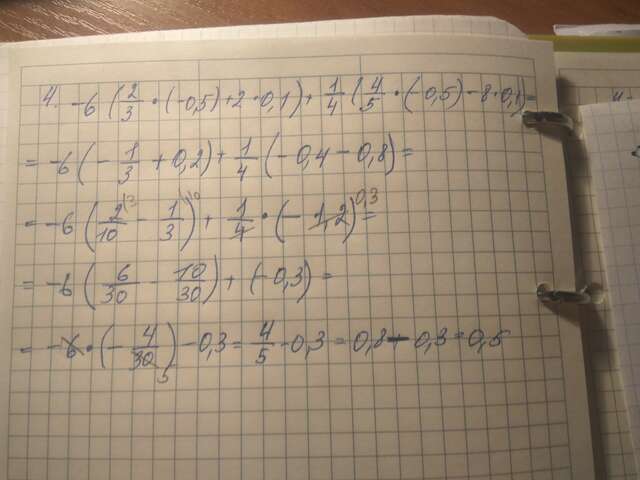 4. -6 (2/3 · (-0,5) + 2 · 0,1) + 1/4 (4/5 · (-0,5) - 8 · 0,1) =
= -6 (-1/3 + 0,2) + 1/4 (-0,4 - 0,8) =
= -6 (2/10 - 1/3) + 1/4 · (-1,2) 0,3 =
= -6 (6/30 - 10/30) + (-0,3) =
= -6 · (-4/30 5) - 0,3 = 4/5 - 0,3 = 0,8 - 0,3 = 0,5